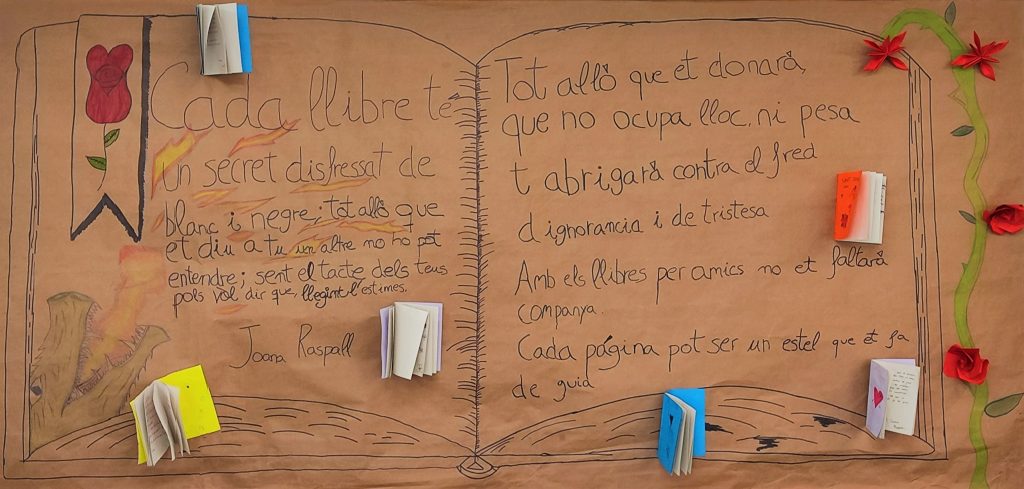 Cada llibre té
un secret disfressat de
blanc i negre; tot allò que
et diu a tu un altre no ho pot
entendre; sent el tacte dels teus
pols vol dir que, llegint l'estimes.
Joana Raspall
Tot allò que et donarà,
que no ocupa lloc, ni pesa
t abrigarà contra el fred
d ignorancia i de tristesa
Amb els llibres per amics no et faltarà
companya.
Cada página pot ser un estel que et fa
de guia